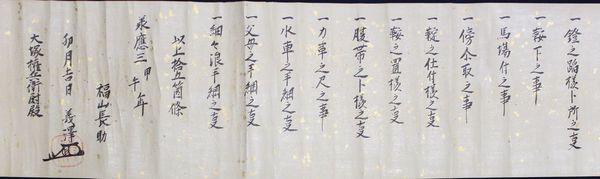 一鐙之踏様卜所之支
一鞍下之事
一馬場付之事
一傍尒取之事
一靛之仕付様之支
一鞍之置様之支
一腹帯之卜様之支
一力革之尺之事
一水車之手綱之支
一父母之手綱之支
一細々浪手綱之支
以上拾五箇條
承應三甲午年
福山長助
卯月吉日 義澤
大塚権兵衛尉殿